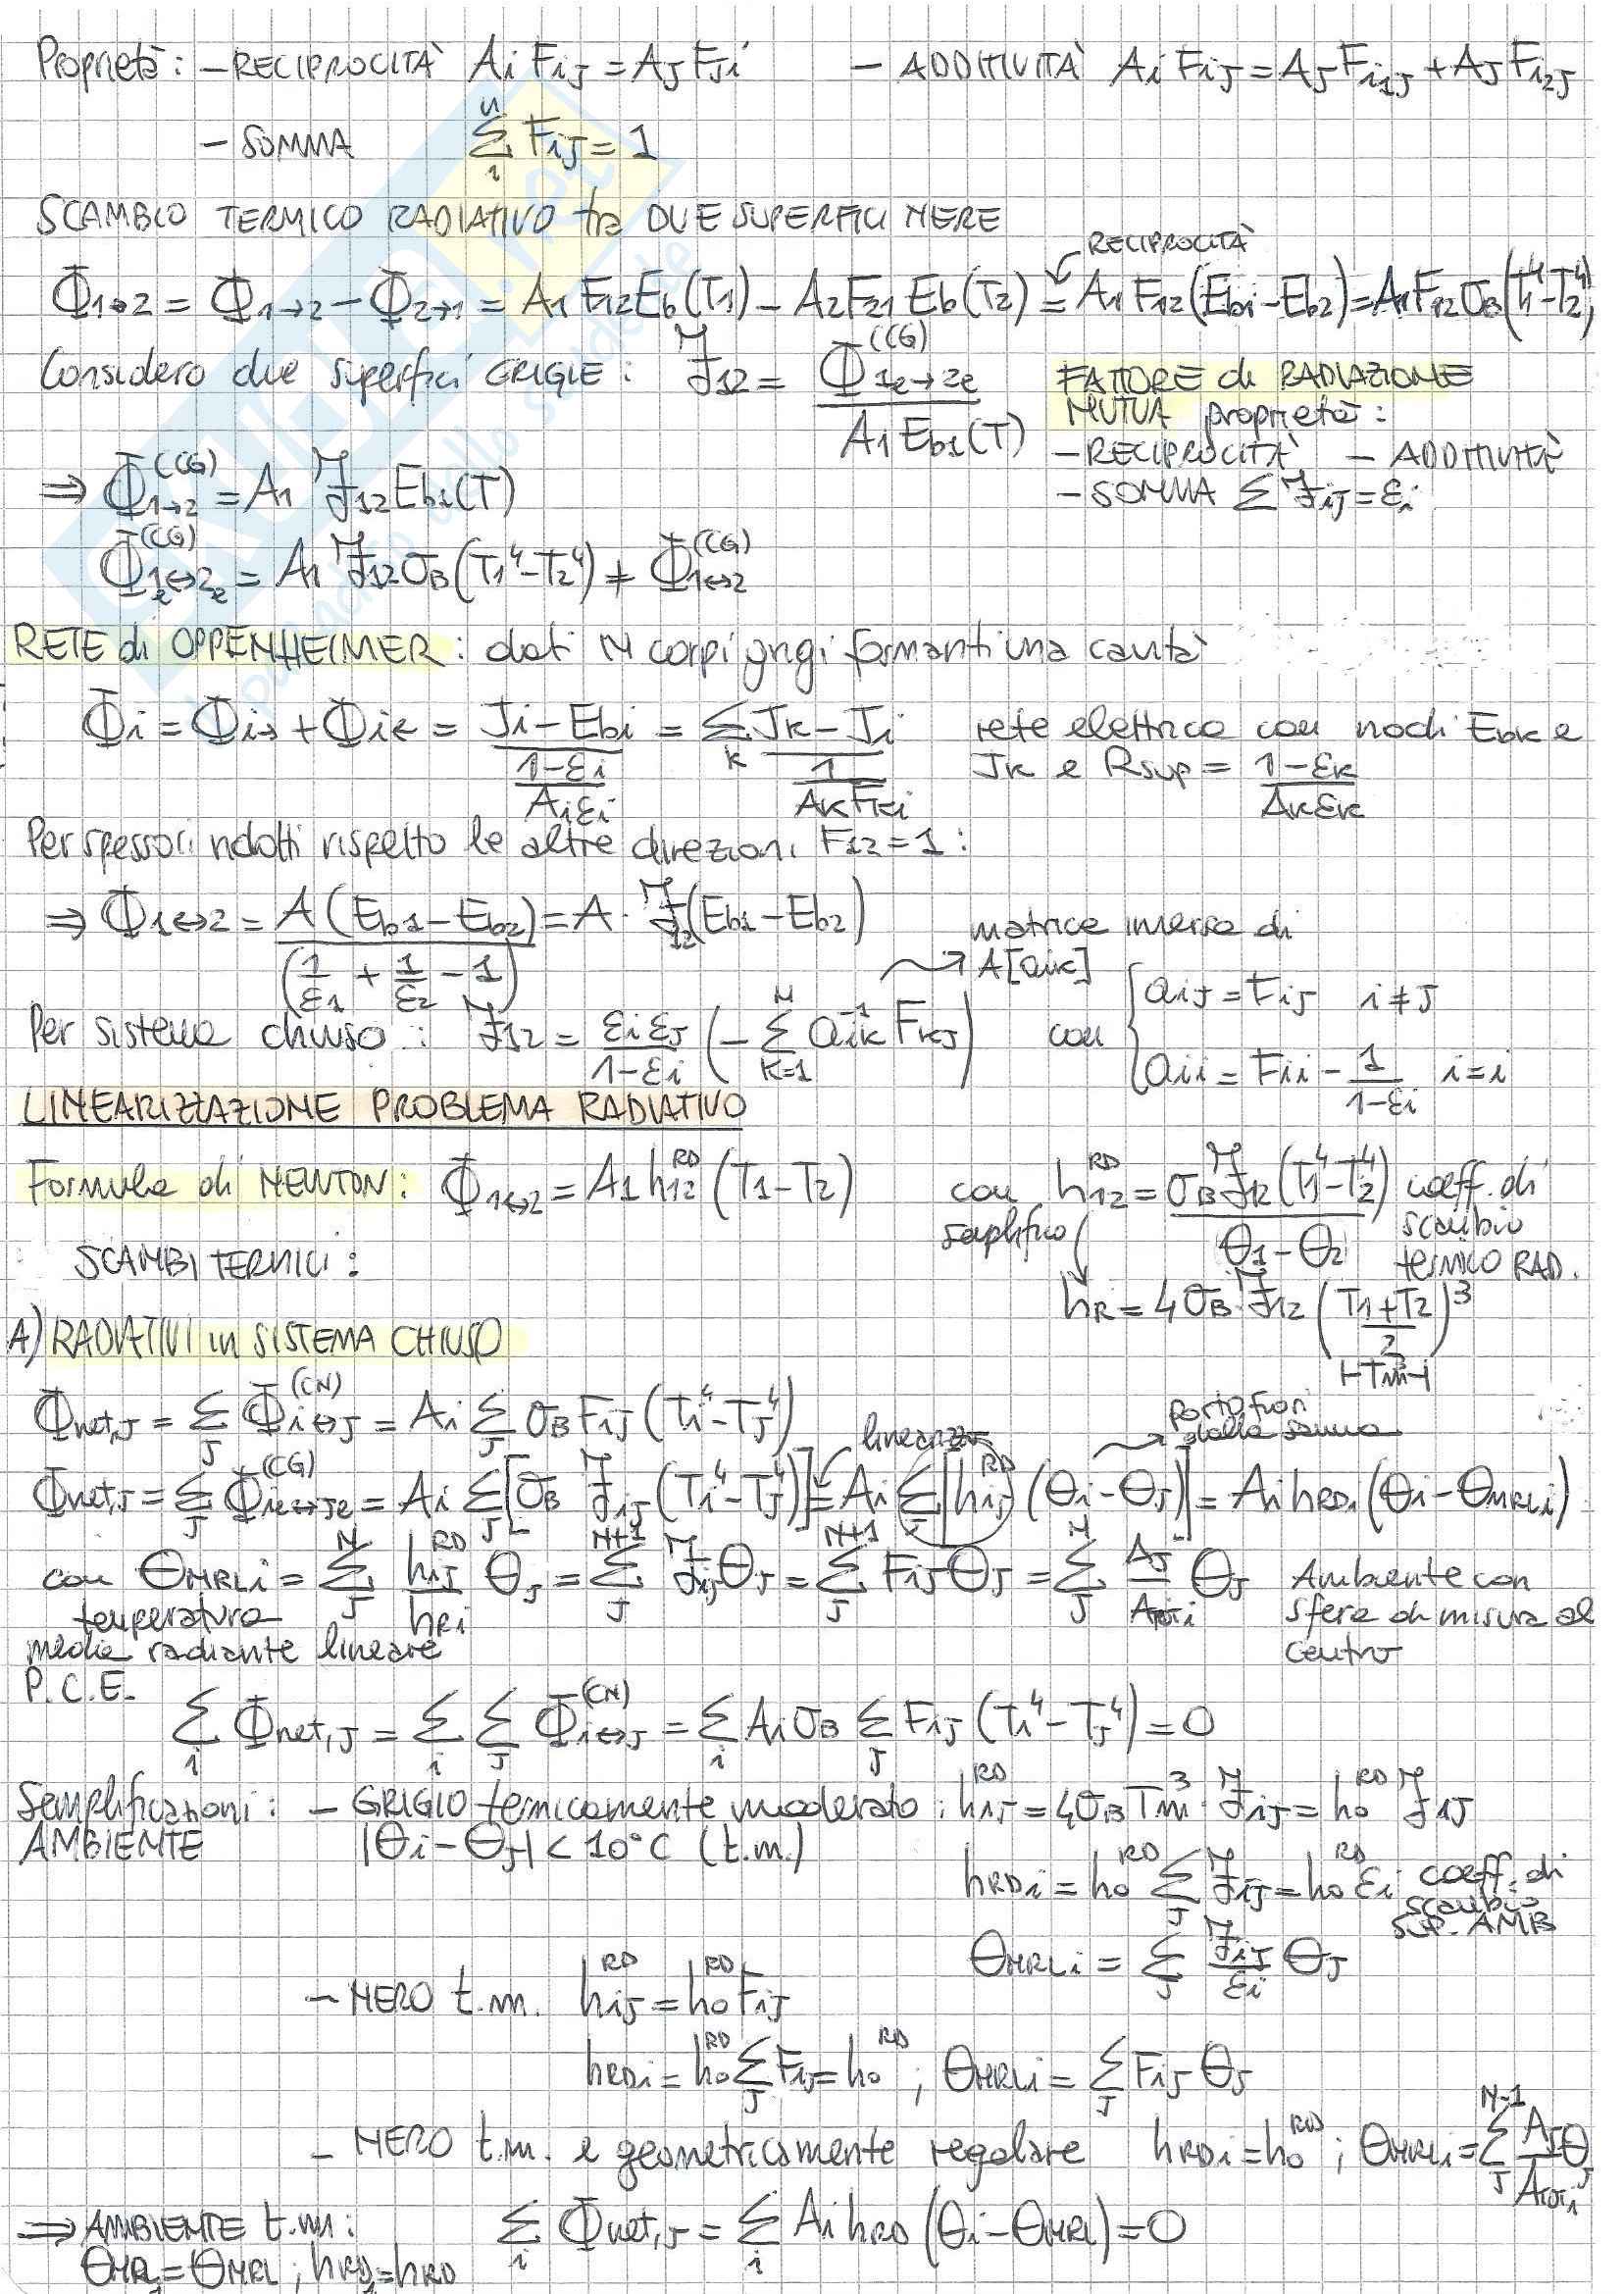 Proprietà: - RECIPROCITÀ Ai Fij = Aj Fji - ADDITIVITÀ Ai Fij = Aj Fi1j + Aj Fi2j
- SOMMA Σ_i^n Fij = 1
SCAMBIO TERMICO RADIATIVO tra DUE SUPERFICI NERE
RECIPROCITÀ
Φ1↔2 = Φ1→2 - Φ2→1 = A1 F12 Eb(T1) - A2 F21 Eb(T2) = A1 F12 (Eb1 - Eb2) = A1 F12 σB (T1⁴ - T2⁴)
Considero due superfici GRIGIE: ℱ12 = Φ1e→2e^(CG) / A1 Eb1(T) FATTORE di RADIAZIONE
MUTUA proprietà:
- RECIPROCITÀ - ADDITIVITÀ
⇒ Φ1→2^(CG) = A1 ℱ12 Eb1(T) - SOMMA Σ ℱij = εi
Φ1e↔2e^(CG) = A1 ℱ12 σB (T1⁴ - T2⁴) ≠ Φ1↔2^(CG)
RETE di OPPENHEIMER: dati N corpi grigi formanti una cavità
Φi = Φi→ + Φi← = (Ji - Ebi) / ((1-εi)/(Ai εi)) = Σ_k (Jk - Ji) / (1/(Ak Fki)) rete elettrica con nodi Ebk e
Jk e Rsup = (1-εk)/(Ak εk)
Per spessori ridotti rispetto le altre direzioni F12 = 1:
⇒ Φ1↔2 = A (Eb1 - Eb2) / (1/ε1 + 1/ε2 - 1) = A · ℱ12 (Eb1 - Eb2) matrice inversa di
A[aik]
Per sistema chiuso: ℱ12 = (εi εj)/(1-εi) (- Σ_{k=1}^N aik⁻¹ Fkj) con { aij = Fij i≠j
aii = Fii - 1/(1-εi) i=i
LINEARIZZAZIONE PROBLEMA RADIATIVO
Formula di NEWTON: Φ1↔2 = A1 h12^RD (T1 - T2) con h12^RD = σB ℱ12 (T1⁴ - T2⁴) / (θ1 - θ2) coeff. di
scambio
termico RAD.
semplifico
SCAMBI TERMICI:
hR = 4 σB ℱ12 ((T1 + T2)/2)³
Tm
A) RADIATIVI in SISTEMA CHIUSO
Φnet,j = Σ_j Φi↔j^(CN) = Ai Σ_j σB Fij (Ti⁴ - Tj⁴)
linearizzo
porto fuori
dalla somma
Φnet,j = Σ_j Φie↔je^(CG) = Ai Σ_j [σB ℱij (Ti⁴ - Tj⁴)] = Ai Σ_j^{N+1} [hij^RD (θi - θj)] = Ai hRDi (θi - θMRLi)
con θMRLi = Σ_j^N (hij^RD / hRi) θj = Σ_j^{N+1} ℱij θj = Σ_j Fij θj = Σ_j^N (Aj / Atoti) θj Ambiente con
sfera di misura al
centro
temperatura
media radiante lineare
P.C.E.
Σ_i Φnet,j = Σ_i Σ_j Φi↔j^(CN) = Σ_i Ai σB Σ_j Fij (Ti⁴ - Tj⁴) = 0
Semplificazioni: - GRIGIO termicamente moderato: hij^RD = 4 σB Tm³ · ℱij = h0^RD ℱij
AMBIENTE |θi - θj| < 10°C (t.m.)
hRDi = h0^RD Σ_j ℱij = h0^RD εi coeff. di
scambio
SUP. AMB
θMRLi = Σ_j (ℱij / εi) θj
- NERO t.m. hij^RD = h0^RD Fij
hRDi = h0^RD Σ_j Fij = h0^RD ; θMRLi = Σ_j Fij θj
- NERO t.m. e geometricamente regolare hRDi = h0^RD ; θMRLi = Σ_j^{N-1} (Aj / Atoti) θj
⇒ AMBIENTE t.m.: Σ_i Φnet,j = Σ_i Ai hRD (θi - θMRL) = 0
θMRLi = θMRL ; hRDi = hRD